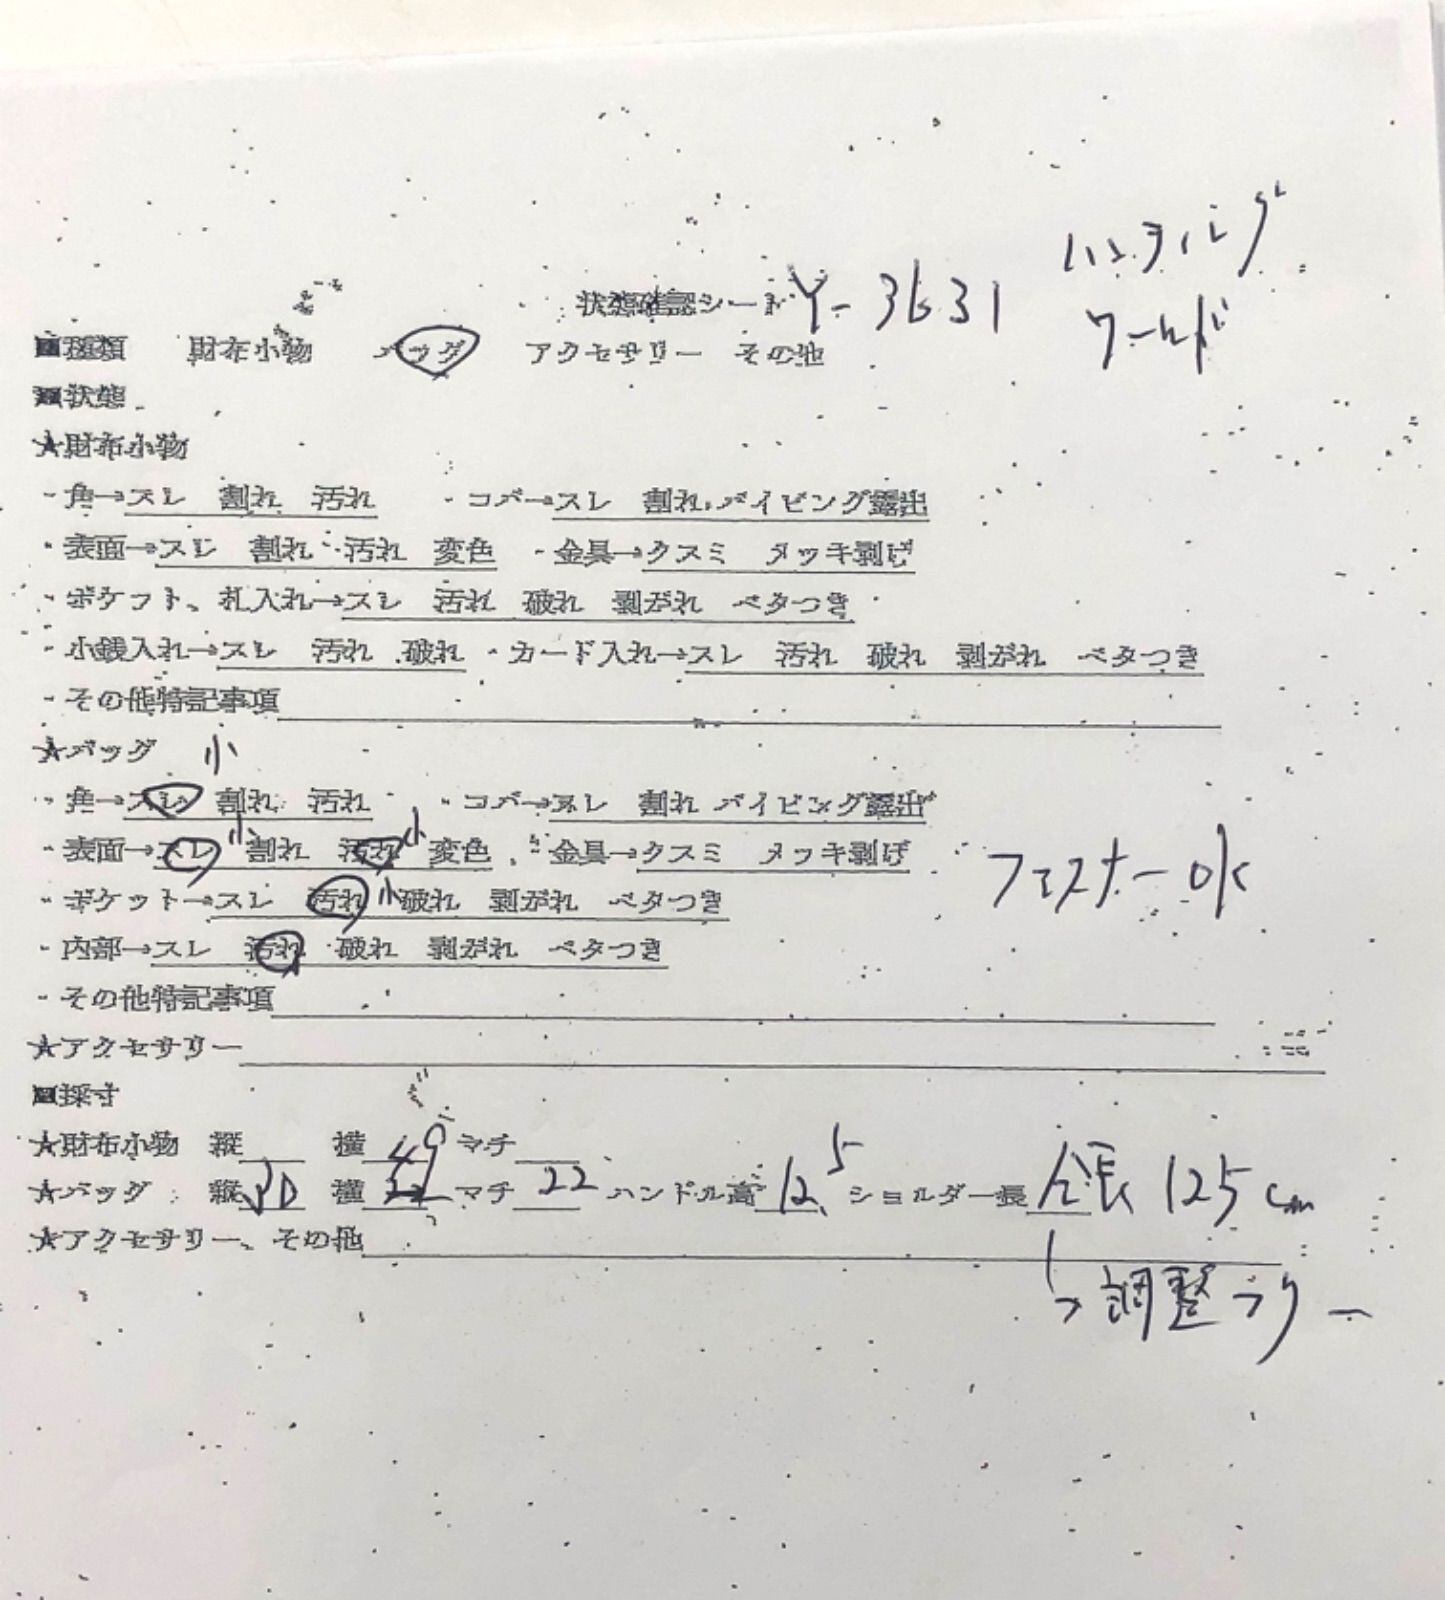 ハンティング
ワールド
状態確認シート Y-3631
■種類 財布小物 バッグ アクセサリー その他
■状態
★財布小物
・角→スレ 割れ 汚れ ・コバ→スレ 割れ パイピング露出
・表面→スレ 割れ 汚れ 変色 ・金具→クスミ メッキ剥げ
・ポケット、札入れ→スレ 汚れ 破れ 剥がれ ベタつき
・小銭入れ→スレ 汚れ 破れ ・カード入れ→スレ 汚れ 破れ 剥がれ ベタつき
・その他特記事項
★バッグ 小
・角→スレ 割れ 汚れ ・コバ→スレ 割れ パイピング露出
・表面→スレ 小 割れ 汚れ 小 変色 ・金具→クスミ メッキ剥げ
ファスナーOK
・ポケット→スレ 汚れ 小 破れ 剥がれ ベタつき
・内部→スレ 汚れ 破れ 剥がれ ベタつき
・その他特記事項
★アクセサリー
■採寸
★財布小物 縦 横 マチ
★バッグ 縦 30 横 49 マチ 22 ハンドル高 12.5 ショルダー長 全長 125cm
★アクセサリー、その他
→調整フリー